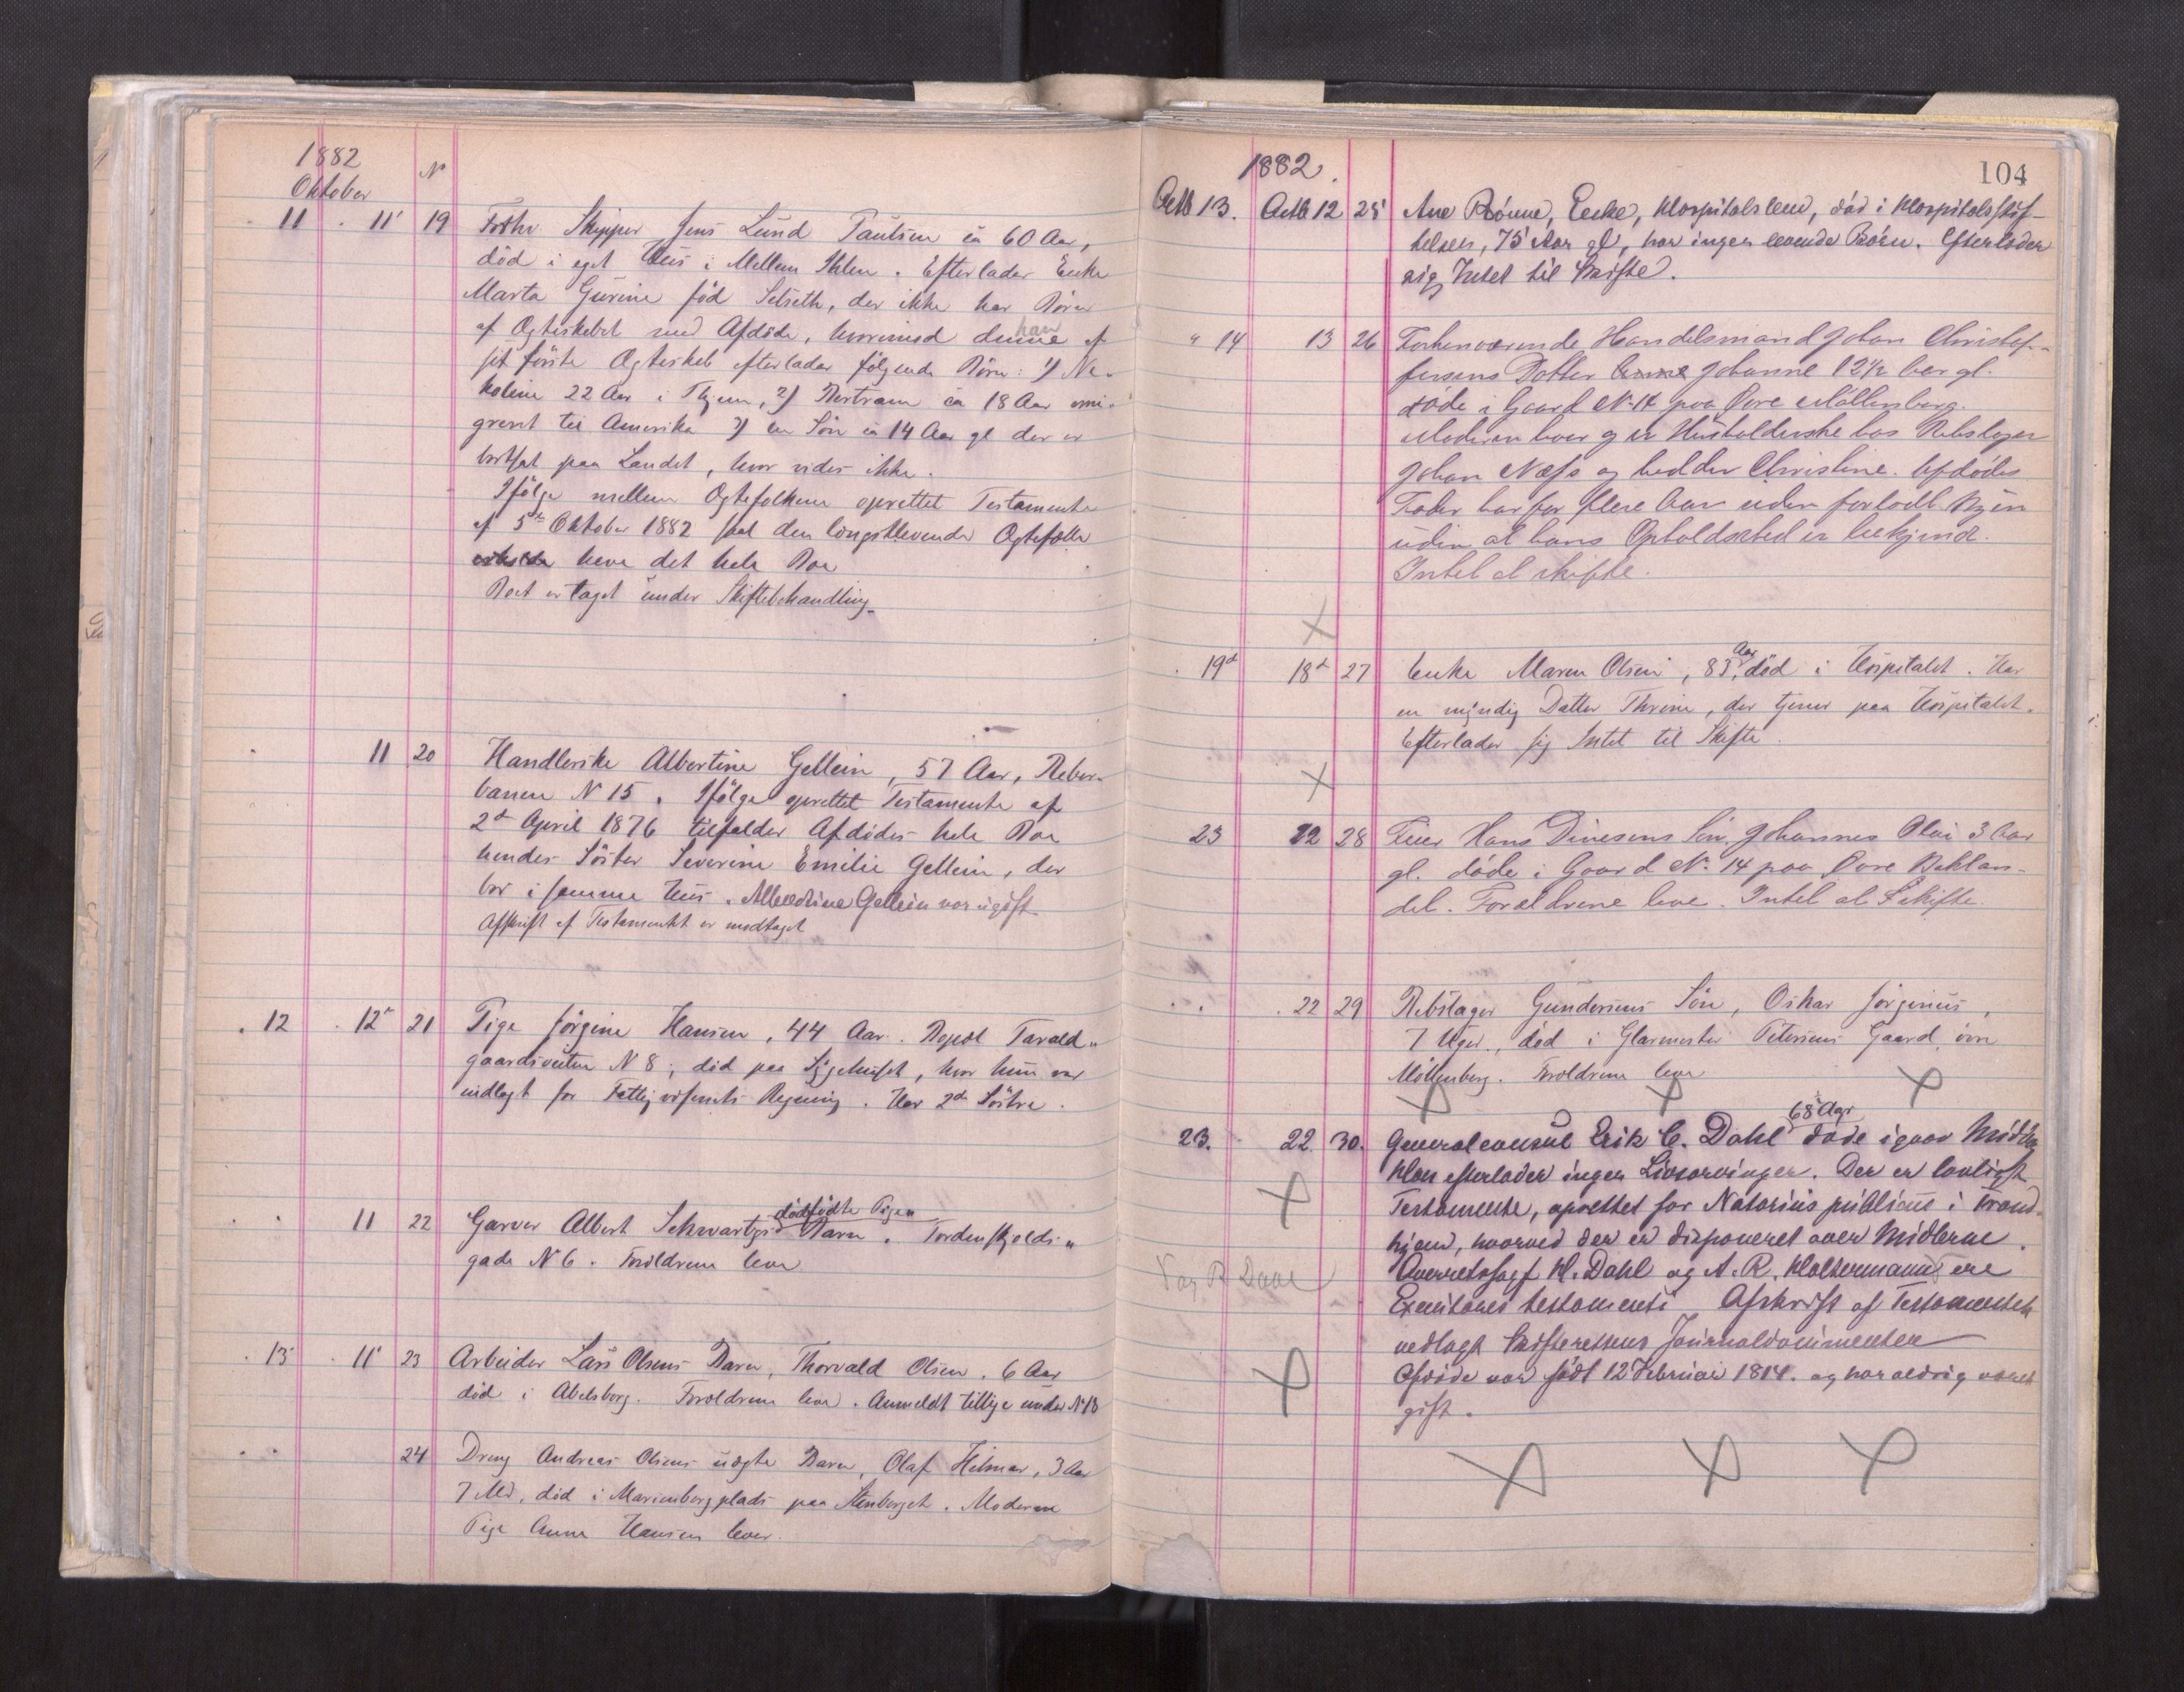 1882
Oktober
N
11 11 19 Fhv Skipper Jens Lund Paulsen ca 60 Aar,
død i eget Hus i Mellem Ihlen. Efterlader Enke
Marta Gurine fød Selseth, der ikke har Børn
af Ægteskabet med Afdøde, hvorimod denne han af
sit første Ægteskab efterlader følgende Børn: 1) Ni-
koline 22 Aar i Thjem, 2) Bertram ca 18 Aar emi-
greret til Amerika 3) en Søn ca 14 Aar gl der er
bortsat paa Landet, hvor vides ikke.
Ifølge mellem Ægtefolkene oprettet Testamente
af 5te Oktober 1882 skal den længstlevende Ægtefælle
have det hele Boe
Boet er taget under Skiftebehandling
11 20 Handlerske Albertine Gellein, 57 Aar, Reber-
banen N 15. Ifølge oprettet Testamente af
2d April 1876 tilfalder Afdødes hele Boe
hendes Søster Severine Emilie Gellein, der
bor i samme Hus. Albertine Gellein var ugift
Afskrift af Testamentet er modtaget
12 12te 21 Pige Jørgine Hansen, 44 Aar. Bopæl Tavald-
gaardsveiten N 8, død paa Sygehuset, hvor hun var
indlagt for Fattigvæsenets Regning. Har 2de Søstre.
11 22 Garver Albert Schwartzs dødfødte Pige Barn. Tordenskjolds-
gade N 6. Forældrene leve
13 11 23 Arbeider Lars Olsens Barn, Thorvald Olsen, 6 Aar
død i Abelsborg. Forældrene leve. Anmeldt tillige under N 18
24 Dreng Andreas Olsens uægte Barn, Olaf Hilmar, 3 Aar
7 Md, død i Marienborgplads paa Stenberget. Moderen
Pige Anna Hansen lever.
1882.
104
Octb 13. Octb 12 25 Ane Rønne, Enke, Hospitalslem, død i Hospitalsstif-
telsen, 75 Aar gl, har ingen levende Børn. Efterlader
sig Intet til Skifte.
" 14 13 26 Forhenværende Handelsmand Johan Christof-
fersens Datter Johanne 12½ Aar gl.
døde i Gaard No 14 paa Øvre Møllenberg.
Moderen lever og er Husholderske hos Rebslager
Johan Næss og hedder Christine. Afdødes
Fader har for flere Aar siden forladt Byen
uden at hans Opholdssted er bekjendt.
Intet at skifte.
19d 18d 27 Enke Maren Olsen, 85 Aar, død i Hospitalet. Har
en myndig Datter Thrine, der tjener paa Hospitalet.
Efterlader sig Intet til Skifte
23 22 28 Hans Dinesens Søn, Johannes Olai 3 Aar
gl. døde i Gaard No 14 paa Øvre Baklan-
det. Forældrene leve. Intet at Skifte
22 29 Rebslager Gundersens Søn, Oskar Jørginus,
7 Uger, død i Glarmester Petersens Gaard, øvre
Møllenberg. Forældrene leve
23. 22. 30. Generalconsul Erik C. Dahl 68 Aar døde igaar Middag
Han efterlader ingen Livsarvinger. Der er lovligt
Testamente, oprettet for Notarius publicus i Trond-
hjem, hvorved der er disponeret over Midlerne.
Overretssagf H. Dahl og A. R. Holtermann ere
Executores testamenti. Afskrift af Testamentet
vedlagt Skifterettens Journaldocumenter
Afdøde var født 12 Februar 1814. og har aldrig været
gift.